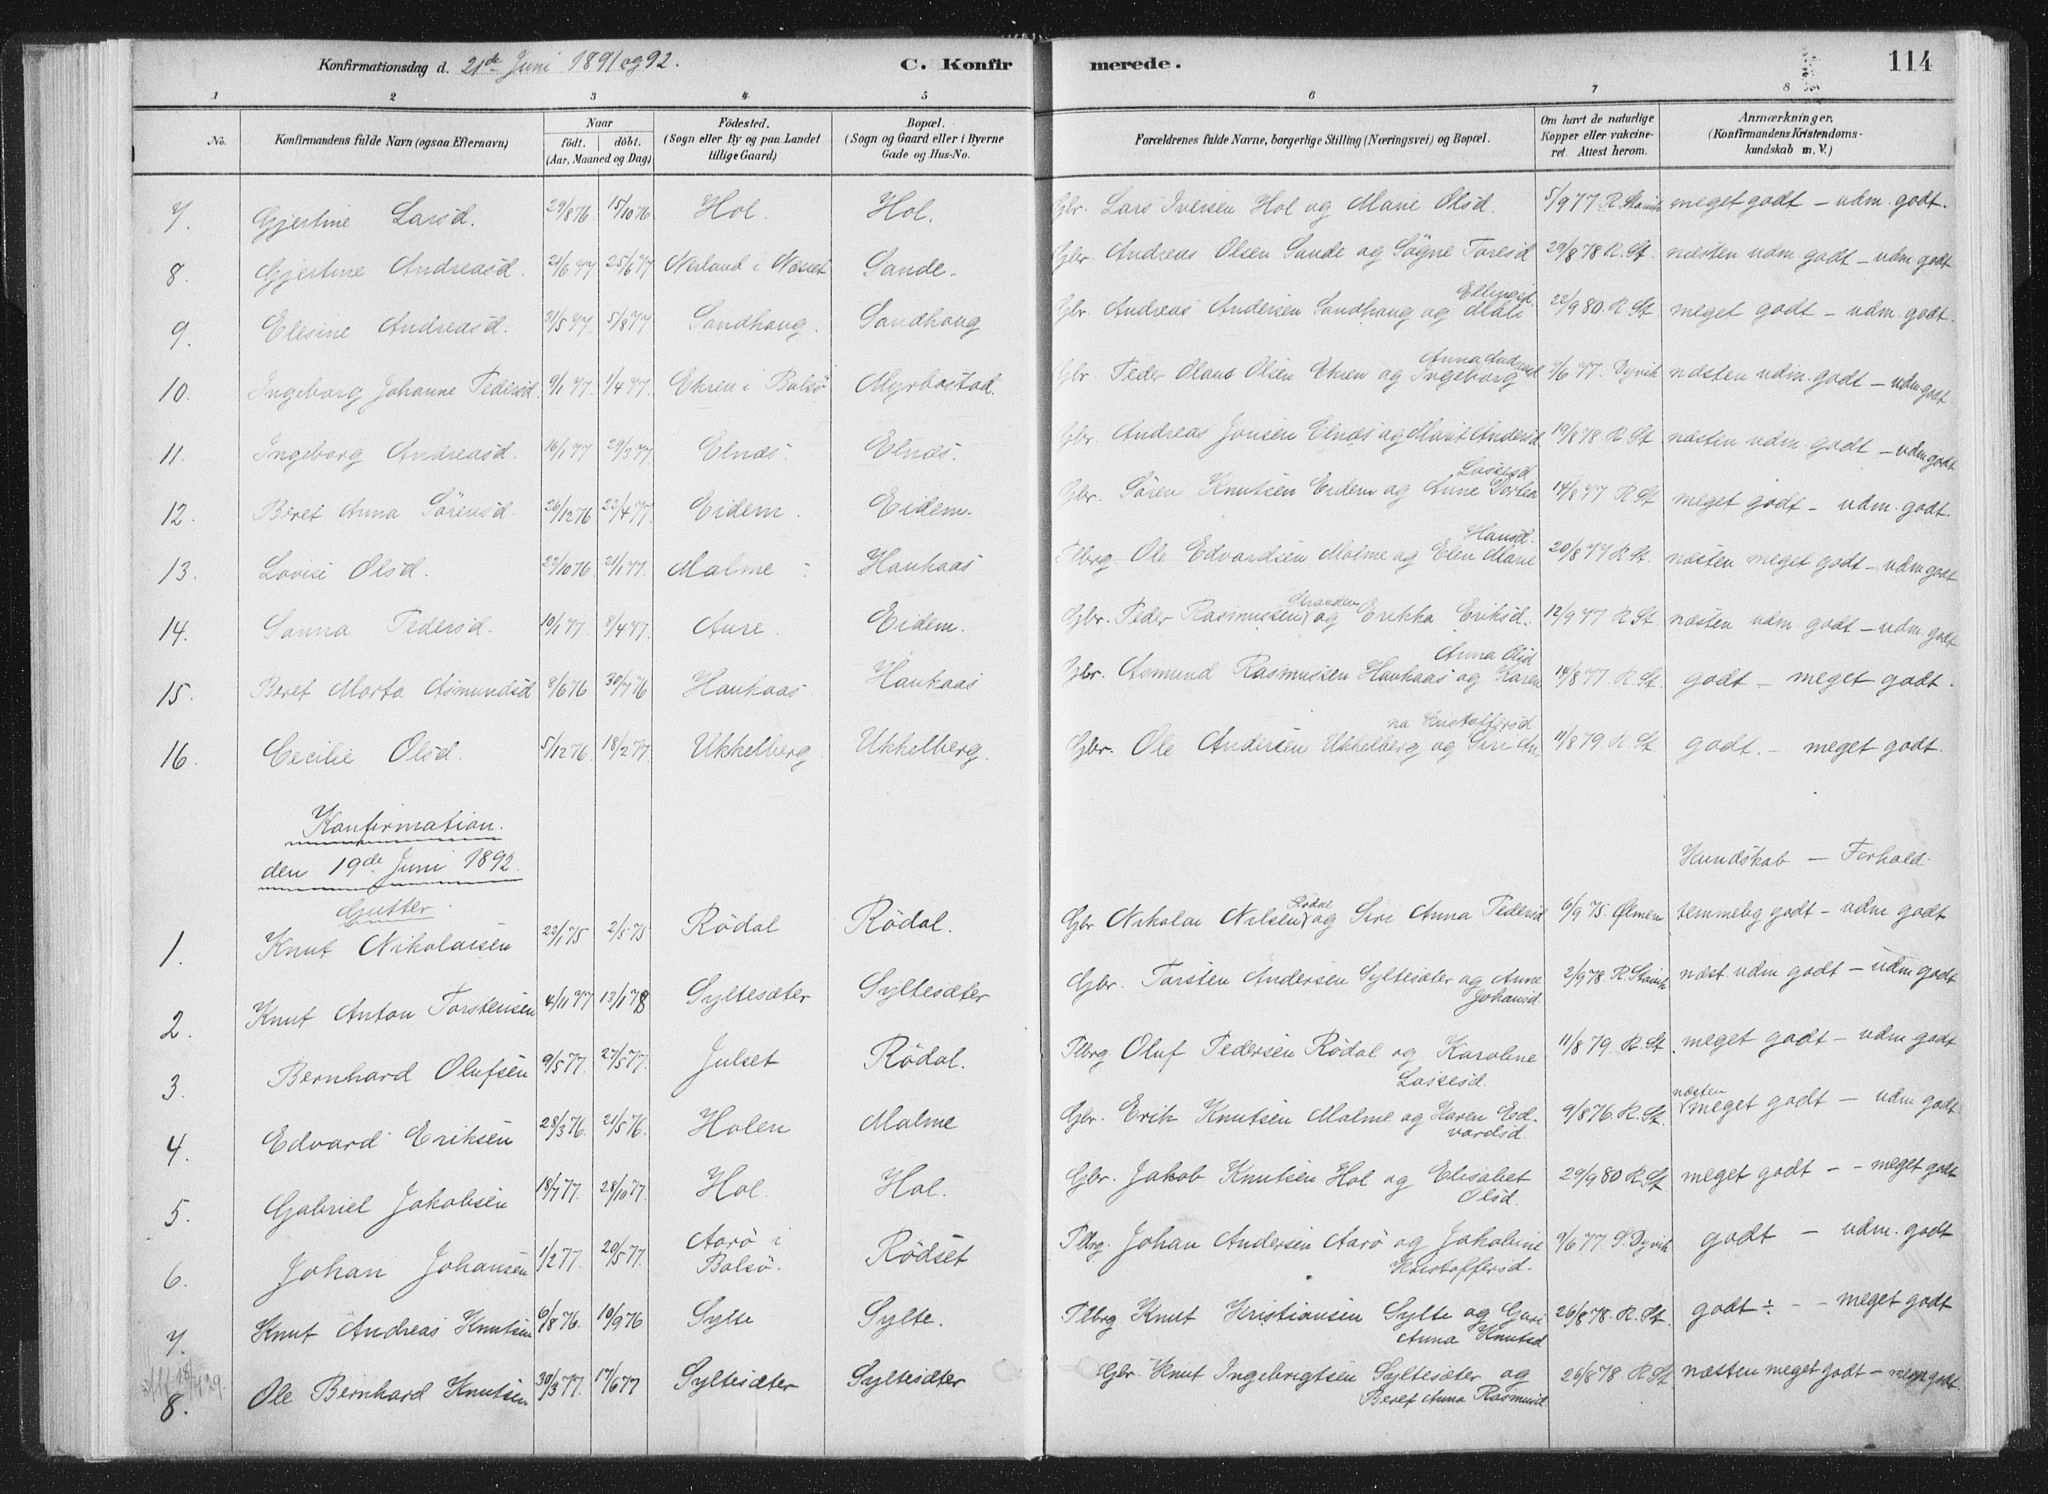 Konfirmationsdag d. 21de Juni 1891 og 92. C. Konfirmerede. 114
1 2 3 4 5 6 7 8
No. Konfirmandens fulde Navn (ogsaa Efternavn) Naar födt. döbt. (Aar, Maaned og Dag) Födested. (Sogn eller By og paa Landet tillige Gaard) Bopæl. (Sogn og Gaard eller i Byerne Gade og Hus-No. Forældrenes fulde Navne, borgerlige Stilling (Næringsvei) og Bopæl. Om havt de naturlige Kopper eller vakcineret. Attest herom. Anmærkninger. (Konfirmandens Kristendomskundskab m. V.)
7. Gjertine Larsd. 29/8 76 15/10 76 Hol. Hol. Gbr. Lars Iversen Hol og Marie Olsd. 5/9 77 R. Stavik meget godt – udm. godt.
8. Gjertine Andreasd. 21/6 77 25/6 77 Nerland i Næsset Sande. Gbr. Andreas Olsen Sande og Søgne Toresd 29/8 78 R. St. næsten udm. godt – udm. godt
9. Elesine Andreasd. 31/5 77 5/8 77 Sandhaug. Sandhaug Gbr. Andreas Andersen Sandhaug og Mali Ellingsd. 22/9 80. R. St. meget godt – udm. godt.
10. Ingeborg Johanne Pedersd. 9/1 77. 1/4 77. Ehren i Bolsö Myrbostad. Gbr Peder Olaus Olsen Ehren og Ingeborg Anna Andersd 9/6 77. Dyvik næsten udm. godt – udm. godt.
11. Ingeborg Andreasd. 16/1 77 29/3 77. Elnæs. Elnæs. Gbr. Andreas Jonsen Elnæs og Marit Andersd 19/8 78 R. St næsten udm. godt – udm. godt
12. Beret Anna Sörensd. 26/12 76 22/4 77. Eidem. Eidem. Gbr. Sören Knutsen Eidem og Anne Dortea Lassesd 14/8 77 R. St. meget godt – udm. godt.
13. Lovise Olsd. 22/10 76. 21/1 77. Malme Haukaas Plbrg Ole Edvardsen Malme og Elen Marie Hansd. 20/8 77 R. St. næsten meget godt – udm. godt
14. Sanna Pedersd. 10/1 77. 8/4 77. Aure. Eidem. Gbr. Peder Rasmussen Stranden og Erikka Eriksd. 12/9 77 R. St. næsten udm. godt – udm. godt
15. Beret Marta Asmundsd 8/6 76 30/7 76 Haukaas Haukaas Gbr. Asmund Rasmussen Haukaas og Karen Anna Olsd 14/8 77. R. St. godt – meget godt.
16. Cecilie Olsd. 5/12 76. 18/2 77. Ukkelberg Ukkelberg. Gbr. Ole Andersen Ukkelberg og Siri Anna Kristoffersd 11/8 79 R. St godt. – meget godt.
Konfirmation.
den 19de Juni 1892.
Kundskab – Forhold.
Gutter.
1. Knut Nikolaisen 22/1 75 2/5 75 Rödal Rödal. Gbr Nikolai Nilsen Rödal og Siri Anna Pedersd 6/9 75. Ølmen temmelig godt – udm. godt
2. Knut Anton Torstensen 4/11 77 13/1 78 Syltesæter Syltesæter Gbr. Torsten Andersen Syltesæter og Anne Johansd. 2/9 78. R. Stavik næst. udm. godt – udm. godt
3. Bernhard Olufsen 9/5 77. 27/5 77. Julset Rödal. Plbrg Oluf Pedersen Rödal og Karoline Lassesd. 11/8 79. R. St. meget godt – udm. godt
4. Edvard Eriksen 28/3 76. 21/5 76. Holen Malme Gbr. Erik Knutsen Malme og Karen Edvardsd. 9/8 76. R. St. næsten meget godt – udm. godt.
5. Gabriel Jakobsen 18/7 77. 28/10 77. Hol. Hol. Gbr. Jakob Knutsen Hol og Elisabet Olsd. 29/9 80 R. St meget godt – meget godt
6. Johan Johansen 1/2 77. 20/5 77. Aarö i Bolsö. Rödset Plbrg. Johan Andersen Aarö og Jakobine Kristoffersd. 9/6 77. S. Dyvik godt – udm. godt
7. Knut Andreas Knutsen 6/8 76. 10/9 76 Sylte Sylte. Plbrg Knut Kristiansen Sylte og Guri Anna Knutsd 26/8 78. R. St. godt ÷ – meget godt
8. Ole Bernhard Knutsen 30/3 77. 17/6 77 Syltesæter Syltesæter Gbr. Knut Ingebrigtsen Syltesæter og Beret Anna Rasmusd. 26/8 78 R. St næsten meget godt – meget godt.